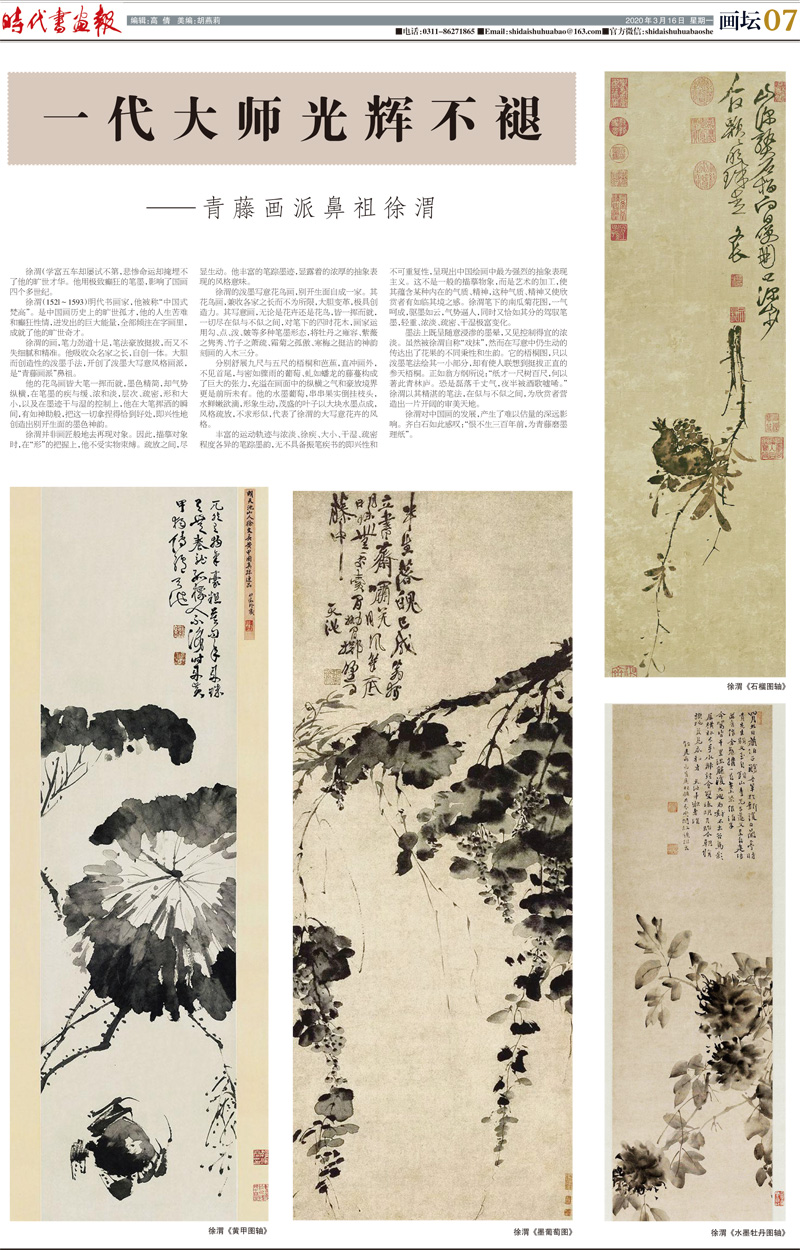 时代书画报
编辑:高 倩 美编:胡燕莉
2020年3月16日 星期一
画坛 07
■电话:0311-86271865 ■Email:shidaishuhuabao@163.com■官方微信:shidaishuhuabaoshe
一代大师光辉不褪
——青藤画派鼻祖徐渭
徐渭(学富五车却屡试不第,悲惨命运却掩埋不
了他的旷世才华。他用极致癫狂的笔墨,影响了国画
四个多世纪。
徐渭(1521~1593)明代书画家,他被称“中国式
梵高”。是中国画历史上的旷世孤才,他的人生苦难
和癫狂性情,迸发出的巨大能量,全部倾注在字画里,
成就了他的旷世奇才。
徐渭的画,笔力劲道十足,笔法豪放挺拔,而又不
失细腻和精准。他吸取众名家之长,自创一体。大胆
而创造性的泼墨手法,开创了泼墨大写意风格画派,
是“青藤画派”鼻祖。
他的花鸟画皆大笔一挥而就,墨色精简,却气势
纵横,在笔墨的疾与缓、浓和淡、层次、疏密、形和大
小,以及在墨迹干与湿的控制上,他在大笔挥洒的瞬
间,有如神助般,把这一切拿捏得恰到好处,即兴性地
创造出别开生面的墨色神韵。
徐渭并非画匠般地去再现对象。因此,描摹对象
时,在“形”的把握上,他不受实物束缚。疏放之间,尽
显生动。他丰富的笔踪墨迹,显露着的浓厚的抽象表
现的风格意味。
徐渭的泼墨写意花鸟画,别开生面自成一家。其
花鸟画,兼收各家之长而不为所限,大胆变革,极具创
造力。其写意画,无论是花卉还是花鸟,皆一挥而就,
一切尽在似与不似之间,对笔下的四时花木,画家运
用勾、点、泼、皴等多种笔墨形态,将牡丹之雍容、紫薇
之隽秀、竹子之萧疏、霜菊之孤傲、寒梅之挺洁的神韵
刻画的入木三分。
分别舒展九尺与五尺的梧桐和芭蕉,直冲画外,
不见首尾,与密如骤雨的葡萄、虬如蟠龙的藤蔓构成
了巨大的张力,充溢在画面中的纵横之气和豪放境界
更是前所未有。他的水墨葡萄,串串果实倒挂枝头,
水鲜嫩欲滴,形象生动,茂盛的叶子以大块水墨点成,
风格疏放,不求形似,代表了徐渭的大写意花卉的风
格。
丰富的运动轨迹与浓淡、徐疾、大小、干湿、疏密
程度各异的笔踪墨韵,无不具备振笔疾书的即兴性和
不可重复性,呈现出中国绘画中最为强烈的抽象表现
主义。这不是一般的描摹物象,而是艺术的加工,使
其蕴含某种内在的气质、精神,这种气质、精神又使欣
赏者有如临其境之感。徐渭笔下的南瓜菊花图,一气
呵成,驱墨如云,气势逼人,同时又恰如其分的驾驭笔
墨,轻重、浓淡、疏密、干湿极富变化。
墨法上既呈随意浸渗的墨晕,又见控制得宜的浓
淡。虽然被徐渭自称“戏抹”,然而在写意中仍生动的
传达出了花果的不同秉性和生韵。它的梧桐图,只以
泼墨笔法绘其一小部分,却有使人联想到挺拔正直的
参天梧桐。正如翁方纲所说:“纸才一尺树百尺,何以
著此青林庐。恐是磊落千丈气,夜半被酒歌嘘唏。”
徐渭以其精湛的笔法,在似与不似之间,为欣赏者营
造出一片开阔的审美天地。
徐渭对中国画的发展,产生了难以估量的深远影
响。齐白石如此感叹:“恨不生三百年前,为青藤磨墨
理纸”。
徐渭《石榴图轴》
半生落魄已成翁独
立书斋啸晚风笔底
明珠无处卖闲抛闲掷野
藤中
天池
徐渭《黄甲图轴》
徐渭《墨葡萄图》
徐渭《水墨牡丹图轴》